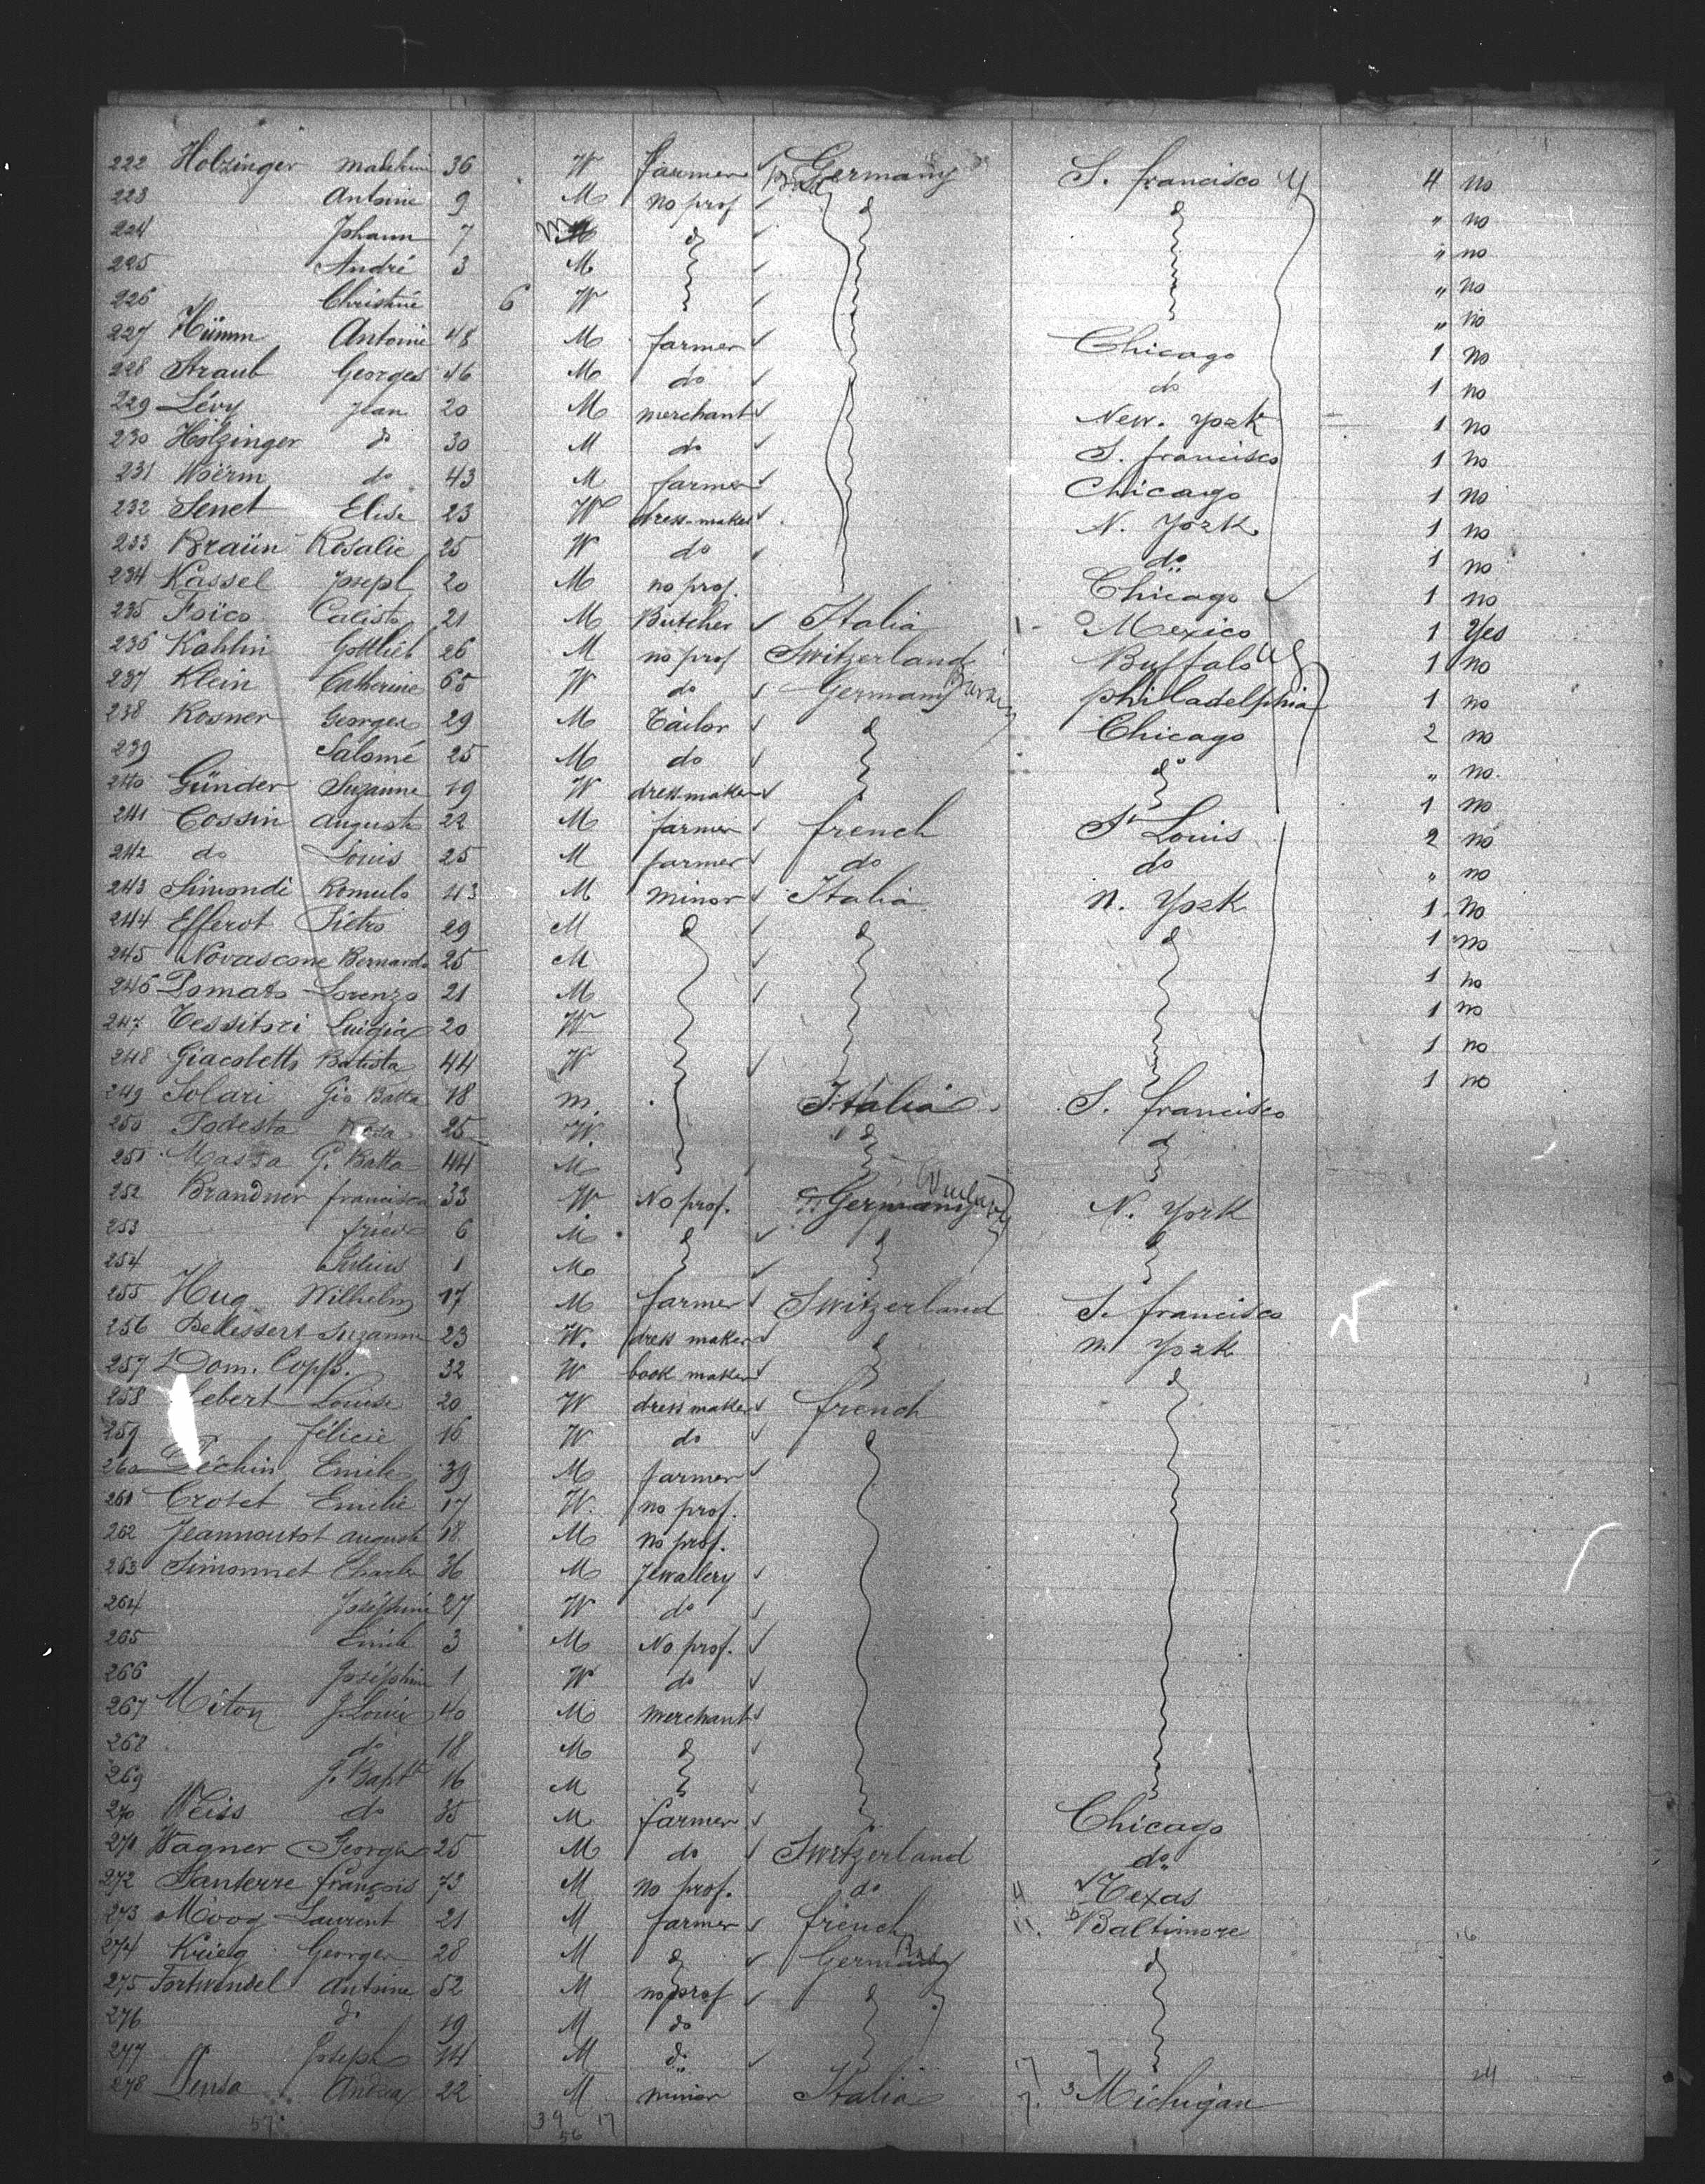 222 Holzinger 36 W farmer Germany S. francisco 4 no
223 Antoine 9 M no prof " no
224 Johann 7 M " no
225 André 3 M " no
226 Christine 6 W " no
227 Hümm Antoine 48 M farmer Chicago 1 no
228 Straub Georges 46 M do do 1 no
229 Lévy Jean 20 M merchant New. York 1 no
230 Holzinger do 30 M do S. francisco 1 no
231 Woërm do 43 M farmer Chicago 1 no
232 Senet Elise 23 W dress-maker N. York 1 no
233 Braün Rosalie 25 W do do 1 no
234 Kassel Joseph 20 M no prof. Chicago 1 no
235 Foïco Calisto 21 M Butcher Italia Mexico 1 Yes
236 Kahlin Gottlieb 26 M no prof Switzerland Buffalo 1 no
237 Klein Catherine 65 W do Germany philadelphia 1 no
238 Rosner Georges 29 M Tailor Chicago 2 no
239 Salomé 25 M do do " no.
240 Günder Suzanne 19 W dressmaker 1 no
241 Cossin auguste 22 M farmer french St Louis 2 no
242 do Louis 25 M farmer do do " no
243 Simondi Romulo 43 M minor Italia N. York 1 No
244 Efferot Piétro 29 M 1 no
245 Novascone Bernardo 25 M 1 no
246 Pomato Lorenzo 21 M 1 no
247 Tessitori Luigia 20 W 1 no
248 Giacoletto Batista 44 W 1 no
249 Solari Gio Batta 18 m. Italia S. francisco
250 Podesta Rosa 25 W.
251 Massa G. Batta 44 M
252 Brandner francisca 33 W. No prof. Germany N. York
253 6 M
254 Julius 1 M
255 Hug Wilhelm 17 M farmer Switzerland S. francisco
256 Dellessert Suzanne 23 W. dress maker N. York
257 Dom. Copp. 32 W book maker
258 Lebert Louise 20 W dressmaker french
259 félicie 16 W do
260 Déchin Emile 39 M farmer
261 Croset Emilie 17 W. no prof.
262 Jeannoutot auguste 18 M no prof.
263 Simonnet Charles 36 M Jewallery
264 Joséphine 27 W do
265 Emile 3 M No prof.
266 Joséphine 1 W do
267 Miton J. Louis 40 M merchant
268 do 18 M
269 J. Bapte 16 M
270 Weiss do 35 M farmer Chicago
271 Wagner George 25 M do Switzerland do
272 Santerre françois 73 M no prof. do 4 Texas
273 Moog Laurent 21 M farmer french 11. Baltimore
274 Krieg Georges 28 M Germany
275 Fortwendel Antoine 52 M no prof
276 do 19 M do
277 Joseph 14 M do 17 7
278 Andrea 22 M minor Italia 7. 3 Michigan
57 39 17
56